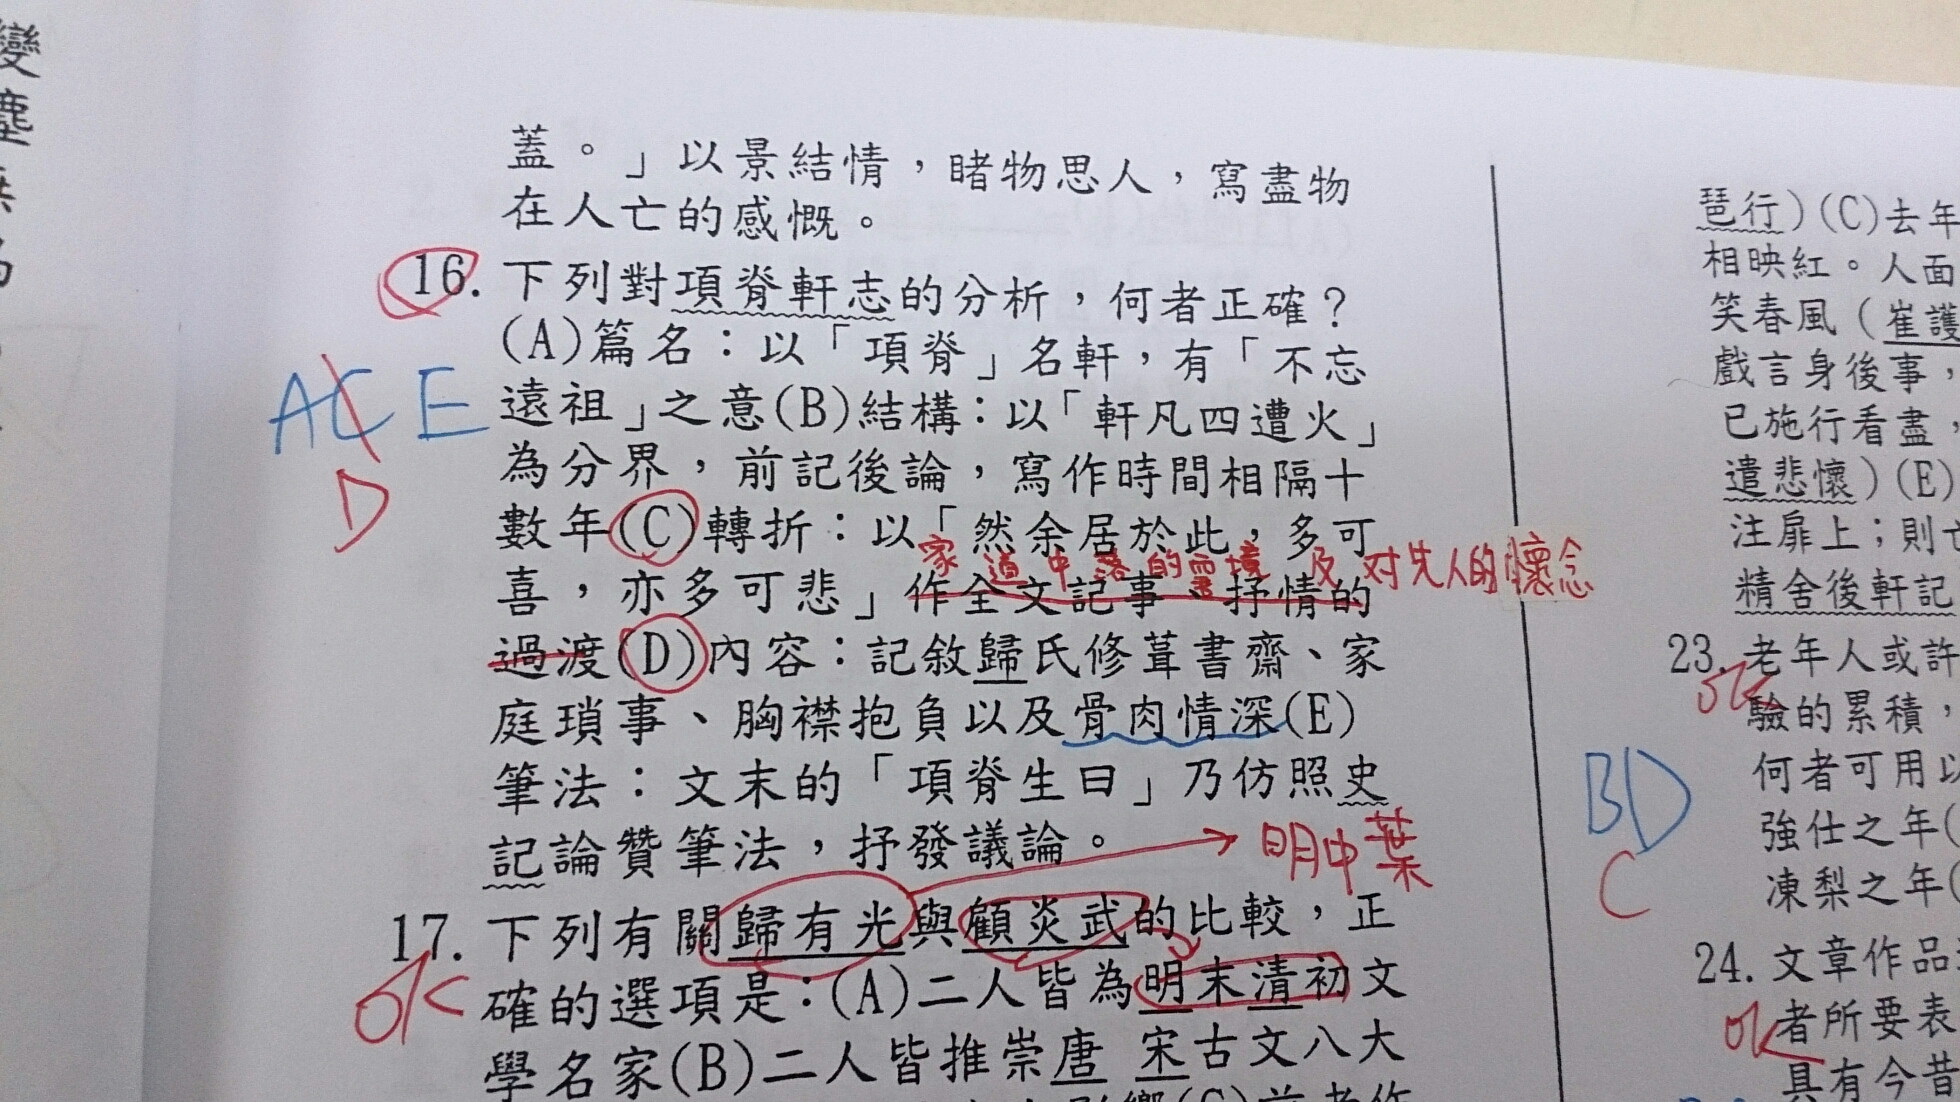 蓋。」以景結情，睹物思人，寫盡物
在人亡的感慨。
16. 下列對項脊軒志的分析，何者正確？
(A)篇名：以「項脊」名軒，有「不忘
遠祖」之意(B)結構：以「軒凡四遭火」
為分界，前記後論，寫作時間相隔十
數年(C)轉折：以「然余居於此，多可
家道中落的靈境 及 对先人的懷念
喜，亦多可悲」作全文記事、抒情的
過渡(D)內容：記敘歸氏修葺書齋、家
庭瑣事、胸襟抱負以及骨肉情深(E)
筆法：文末的「項脊生曰」乃仿照史
記論贊筆法，抒發議論。
明中葉
17. 下列有關歸有光與顧炎武的比較，正
確的選項是：(A)二人皆為明末清初文
學名家(B)二人皆推崇唐 宋古文八大
ACE
D
OK
琶行)(C)去年
相映紅。人面
笑春風(崔護
戲言身後事，
已施行看盡，
遣悲懷)(E)
注扉上；則亡
精舍後軒記
23. 老年人或許
驗的累積，
何者可用以
強仕之年(
凍梨之年(
24. 文章作品
者所要表
具有今昔
OK
BD
C
OK
變
塵